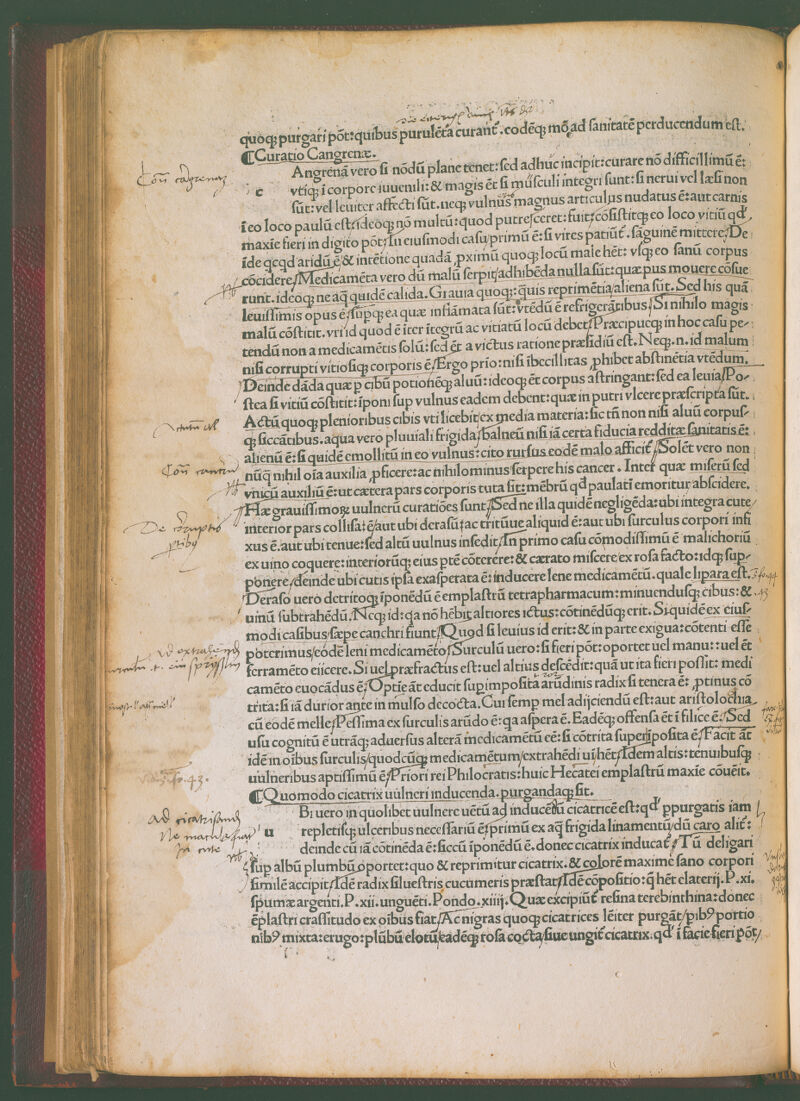 quoq; purgari põt: quibus purulẽta curant̃. eodẽq; mõ ad sanitatẽ perducendum est.
⁋Curatio Cangrenæ.
Angrenã vero si nõdũ plane tenet: sed adhuc incipit: curare nõ difficillimũ ẽ:
c vtiq; ĩ corpore iuuenili: & magis ẽt si musculi integri sunt: si nerui vel læsi non
sũt: vel leuiter affecti sũt. neq; vulnus magnus articulus nudatus ẽ: aut carnis
ĩ eo loco paulũ est: ideoq; nõ multũ: quod putresceret: fuit: cõsistitq; eo loco vitiũ qđ
maxie fieri in digito põt: In eiusmodi casu primũ ẽ: si vires patiũt̃. sãguinẽ mittere: De
ĩde qcqd aridũ ẽ & intẽtione quadã pximũ quoq; locũ male hẽt: vsq; eo sanũ corpus
cõcidere/Medicamẽta vero dũ malũ serpit/adhibẽda nulla sũt: quæ pus mouere cõsue
runt. ideoq; ne aq̃ quidẽ calida. Grauia quoq;: quis reprimẽtia/aliena sũt. Sed his quã
leuissimis opus ẽ/supq; ea quæ inflãmata sũt: vtẽdũ ẽ refrigerãtibus/Si nihilo magis
malũ cõstitit. vri id quod ẽ iter ĩtegrũ ac vitiatũ locũ debet/Præcipueq; in hoc casu pe-
tendũ non a medicamẽtis solũ: sed ẽt a victus ratione præsidiũ est. Neq;.n. id malum
nisi corrupti vitiosiq; corporis ẽ/Ergo prio: nisi ĩbecillitas phibet abstinẽtia vtẽdum.
Deinde dãda quæ p cibũ potionẽq; aluũ: ideoq; ẽt corpus astringant: sed ea leuia/Po-
stea si vitiũ cõstitit: ĩponi sup vulnus eadem debent: quæ in putri vlcere præscripta sũt.
Actũ quoq; plenioribus cibis vti licebit: ex media materia: sic tñ non nisi aluũ corpus-
q; siccãtibus. aqua vero pluuiali frigida/balneũ nisi iã certa fiducia redditæ sanitatis ẽ:
alienũ ẽ: si quidẽ emollitũ in eo vulnus: cito rursus eodẽ malo afficit̃/Solẽt vero non
nũq̃ nihil oĩa auxilia pficere: ac nihilominus serpere his cancer. Inter quæ miserũ sed
vnicũ auxiliũ ẽ: ut cætera pars corporis tuta sit: mẽbrũ qđ paulati emoritur abscidere.
Hæ grauissimoꝝ uulnerũ curatiões sunt/Sed ne illa quidẽ negligẽda: ubi integra cute
interior pars collisa: ẽ/aut ubi derasũ: ac tritũue aliquid ẽ: aut ubi surculus corpori infi
xus ẽ. aut ubi tenue: sed altũ uulnus insedit/In primo casu cõmodissimũ ẽ malichoriũ
ex uino coquere: interiorũq; eius ptẽ cõterere: & cærato miscere ex rosa facto: idq; sup-
ponere/deinde ubi cutis ipsa exasperata ẽ: inducere lene medicamẽtũ. quale lipara est.
Deraso uero detritoq; ĩponẽdũ ẽ emplastrũ tetrapharmacum: minuendusq; cibus: &
uinũ subtrahẽdũ/Neq; id: qa nõ hẽbit altiores ictus: cõtinẽdũq; erit. Si quidẽ ex eius-
modi casibus/sæpe canchri fiunt/Quod si leuius id erit: & in parte exigua: cõtenti esse
poterimus/eodẽ leni medicamẽto/Surculũ uero: si fieri põt: oportet uel manu:: uel ẽt
ferramẽto eiicere. Si uel præfractus est: uel altius descẽdit: quã ut ita fieri possit: medi
camẽto euocãdus ẽ/Optie ãt educit supimposita arũdinis radix si tenera ẽ: ptinus cõ
trita: si iã durior ante in mulso decocta. Cui semp mel adijciendũ est: aut aristolochia
cũ eodẽ melle/Pessima ex surculis arũdo ẽ: qa aspera ẽ. Eadẽq; offensa ẽt ĩ filice ẽ/Sed
usu cognitũ ẽ utrãq; aduersus alterã medicamẽtũ eẽ: si cõtrita supĩposita ẽ/Facit ãt
idẽ in oĩbus surculis/quodcũq; medicamẽtum/extrahẽdi uĩ hẽt/Idem altis: tenuibusq;
uulneribus aptissimũ ẽ/Priori rei Philocratis: huic Hecatei emplastrũ maxie cõuẽit.
⁋Quomodo cicatrix uulneri inducenda. purgandaq; sit.
Bi uero in quolibet uulnere uẽtũ ad inducẽdã cicatricẽ est: qđ ppurgatis iam
u repletisq; ulceribus necessariũ ẽ/primũ ex aq̃ frigida linamentũ/dũ caro alit̃:
deinde cũ iã cõtinẽda ẽ: siccũ ĩponẽdũ ẽ. donec cicatrix inducat̃/Tũ deligari
sup albũ plumbũ oportet: quo & reprimitur cicatrix. & colorẽ maxime sano corpori
similẽ accipit/Idẽ radix siluestris cucumeris præstat/Idẽ cõpositio: q̃ hẽt elaterij. P. xi.
spumæ argenti. P. xii. unguẽti. Pondo. xiiij. Quæ excipiũt̃ resina terebinthina: donec
ẽplastri crassitudo ex oĩbus fiat/Ac nigras quoq; cicatrices lẽiter purgãt/pibꝰ portio
nibꝰ mixta: erugo: plũbũ elotũ/eadẽq; rosa cocta/siue ungit̃ cicatrix. qđ ĩ facie fieri põt/